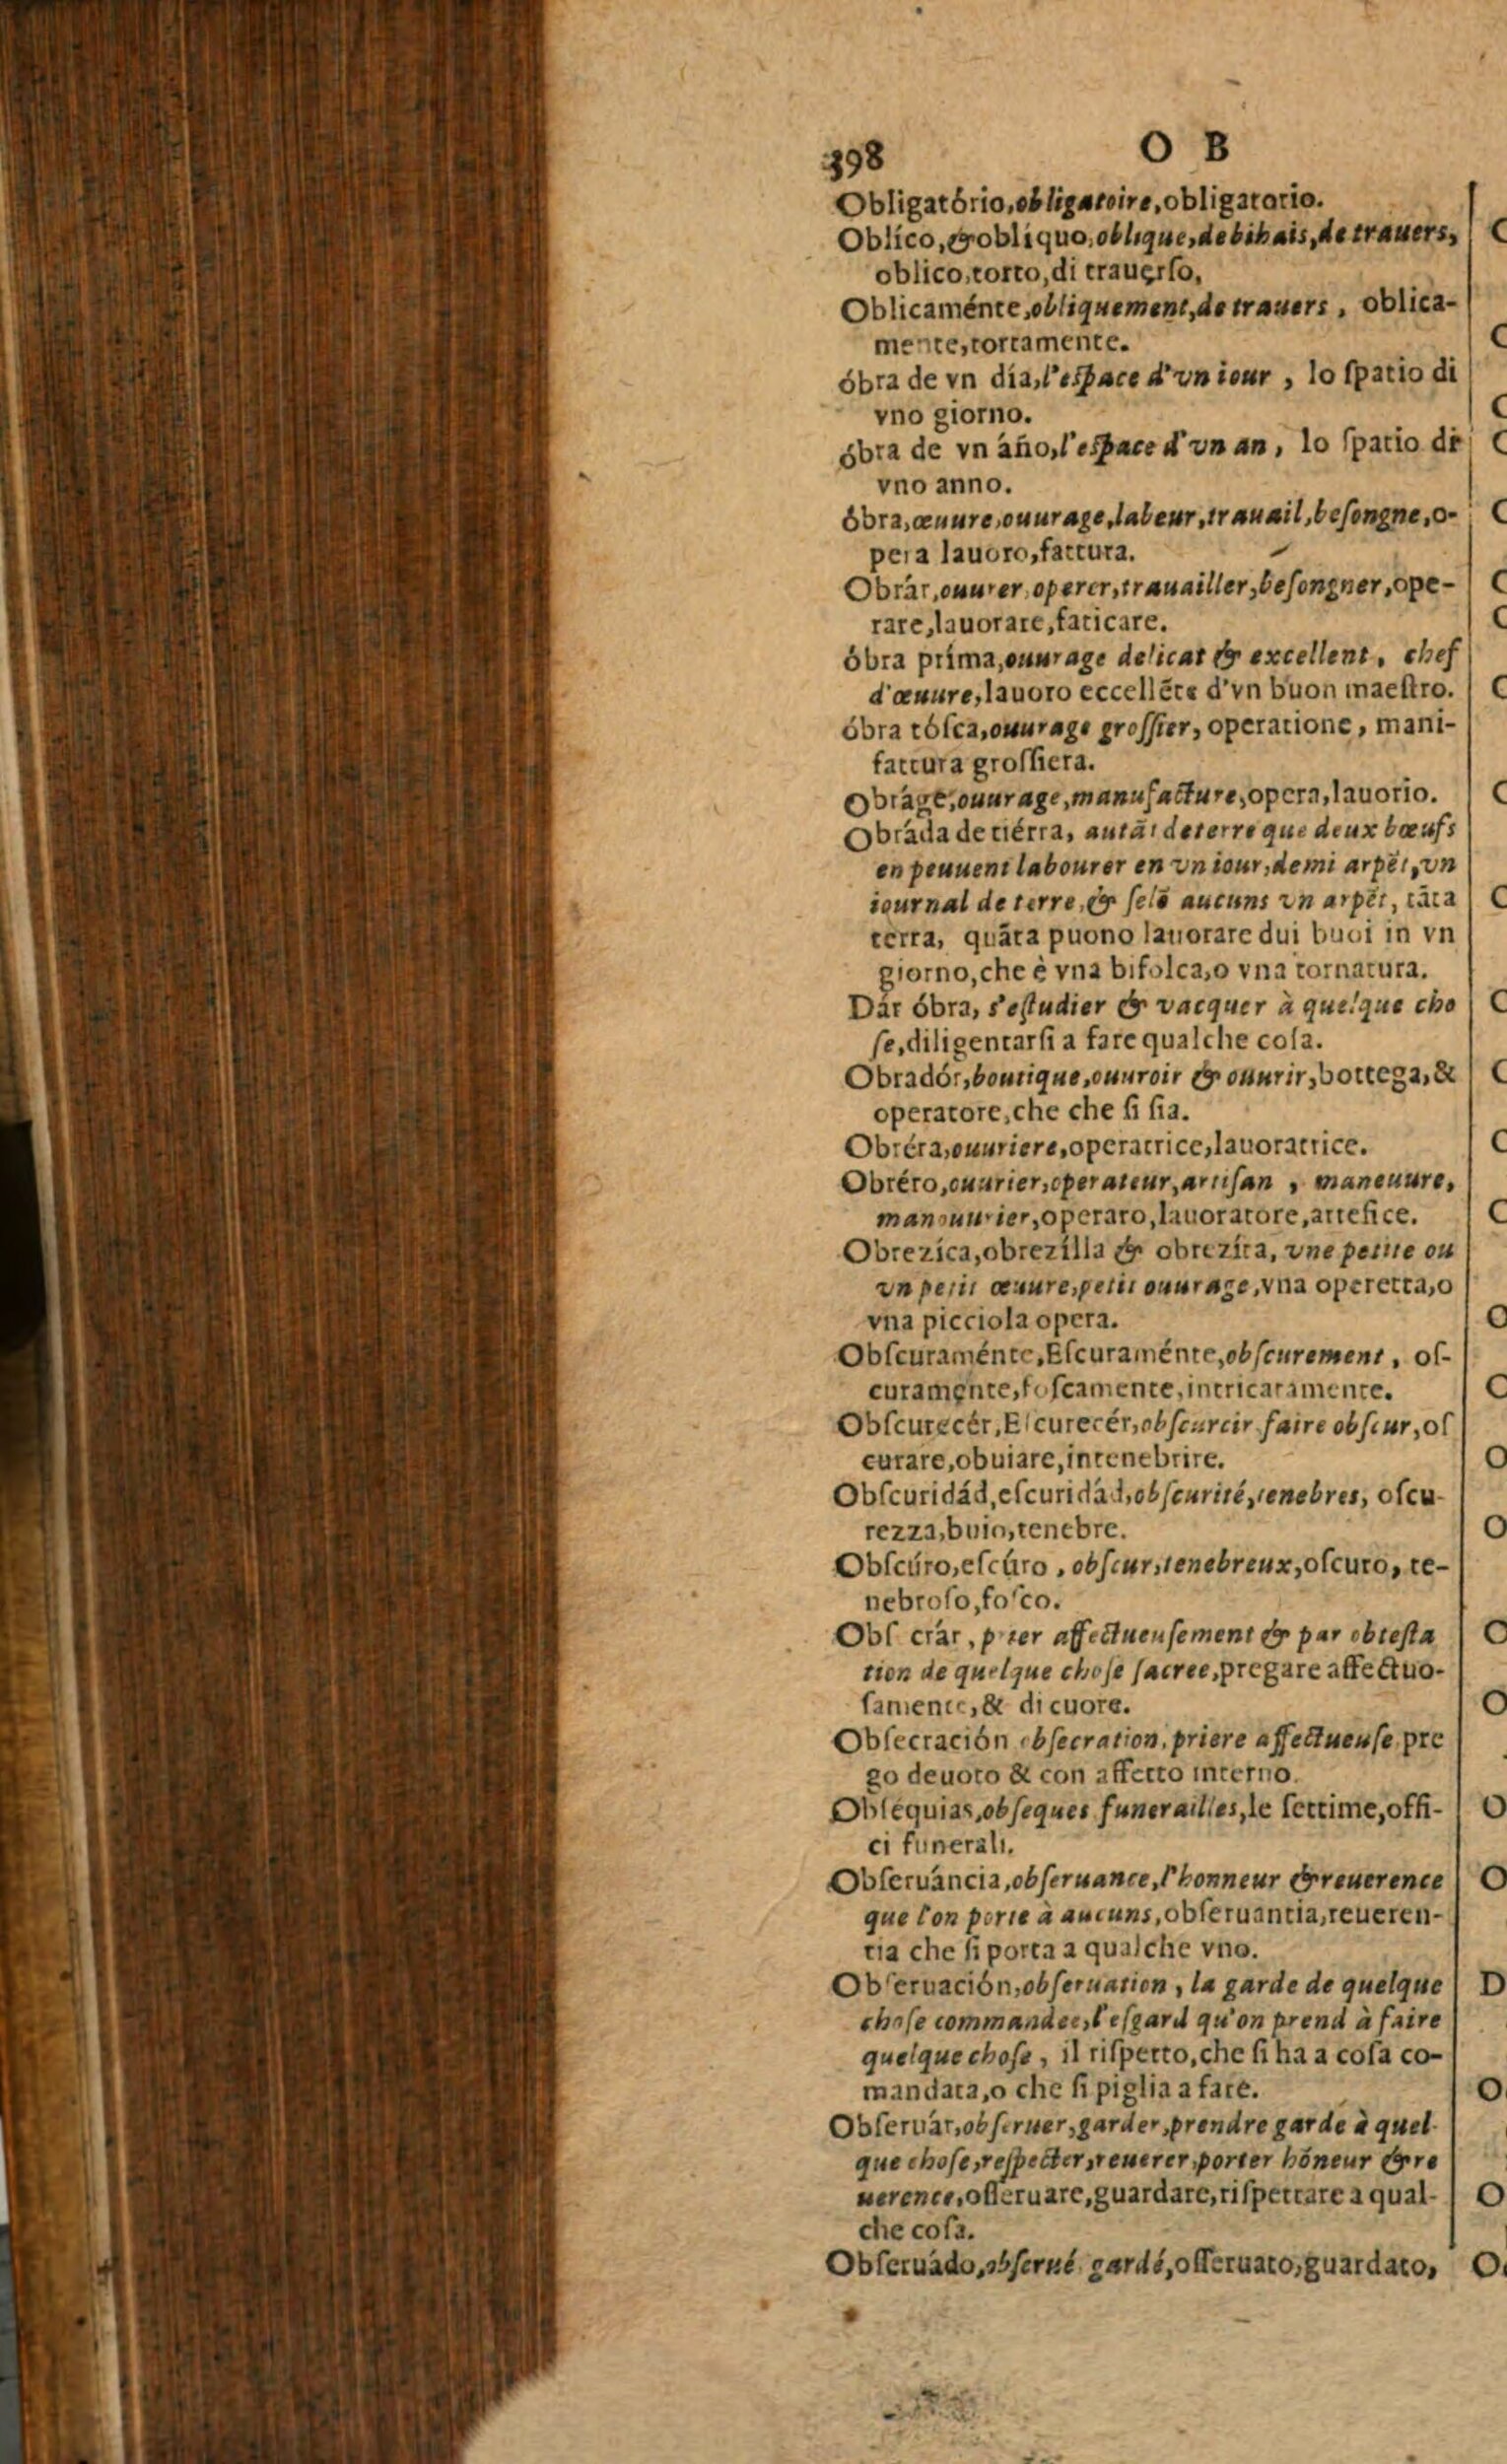 398 O B
Obligatório, obligatoire, obligatorio.
Oblíco, & oblíquo, oblique, de bihais, de trauers,
oblico, torto, di trauęrſo,
Oblicaménte, obliquement, de trauers, oblica-
mente, tortamente.
óbra de vn día, l'eſpace d'vn iour, lo ſpatio di
vno giorno.
óbra de vn áño, l'eſpace d'vn an, lo ſpatio di
vno anno.
óbra, œuure, ouurage, labeur, trauail, beſongne, o-
pera lauoro, fattura.
Obrár, ouurer, operer, trauailler, beſongner, ope-
rare, lauorare, faticare.
óbra príma, ouurage delicat & excellent, chef
d'œuure, lauoro eccellẽte d'vn buon maeſtro.
óbra tóſca, ouurage groſſier, operatione, mani-
fattura groſſiera.
Obráge, ouurage, manufacture, opera, lauorio.
Obráda de tiérra, autãt de terre que deux bœufs
en peuuent labourer en vn iour, demi arpẽt, vn
iournal de terre, & ſelõ aucuns vn arpẽt, tãta
terra, quãta puono lauorare dui buoi in vn
giorno, che è vna bifolca, o vna tornatura.
Dár óbra, s'eſtudier & vacquer à quelque cho
ſe, diligentarſi a fare qualche coſa.
Obradór, boutique, ouuroir & ouurir, bottega, &
operatore, che che ſi ſia.
Obréra, ouuriere, operatrice, lauoratrice.
Obréro, ouurier, operateur, artiſan, maneuure,
manouurier, operaro, lauoratore, artefice.
Obrezíca, obrezílla & obrezíta, vne petite ou
vn petit œuure, petit ouurage, vna operetta, o
vna picciola opera.
Obſcuraménte, Eſcuraménte, obſcurement, oſ-
curamęnte, foſcamente, intricatamente.
Obſcurecér, Eſcurecér, obſcurcir faire obſcur, oſ
curare, obuiare, intenebrire.
Obſcuridád, eſcuridád, obſcurité, tenebres, oſcu-
rezza, buio, tenebre.
Obſcúro, eſcúro, obſcur, tenebreux, oſcuro, te-
nebroſo, foſco.
Obſ crár, prier affectueuſement & par obteſta
tion de quelque choſe ſacree, pregare affectuo-
ſamente, & di cuore.
Obſecración obſecration, priere affectueuſe, pre
go deuoto & con affetto interno.
Obſéquias, obſeques funerailles, le ſettime, offi-
ci funerali.
Obſeruáncia, obſeruance, l'honneur & reuerence
que l'on porte à aucuns, obſeruantia, reueren-
tia che ſi porta a qualche vno.
Obſeruación, obſeruation, la garde de quelque
choſe commandee, l'eſgard qu'on prend à faire
quelque choſe, il riſpetto, che ſi ha a coſa co-
mandata, o che ſi piglia a fare.
Obſeruár, obſeruer, garder, prendre garde à quel
que choſe, reſpecter, reuerer, porter hõneur & re
uerence, oſſeruare, guardare, riſpettare a qual-
che coſa.
Obſeruádo, obſerué gardé, oſſeruato, guardato,